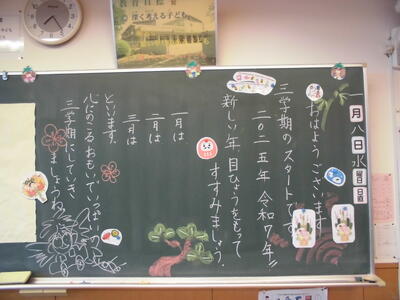 一月八日水曜日
おはようございます
三学期のスタートです。
二〇二五年令和7年!!
新しい年、目ひょうをもって
すすみましょう。
一月は
二月は
三月は
といいます。
心にのこるおもいでいっぱいの
三学期にしていき
ましょうね
深く考える子ども